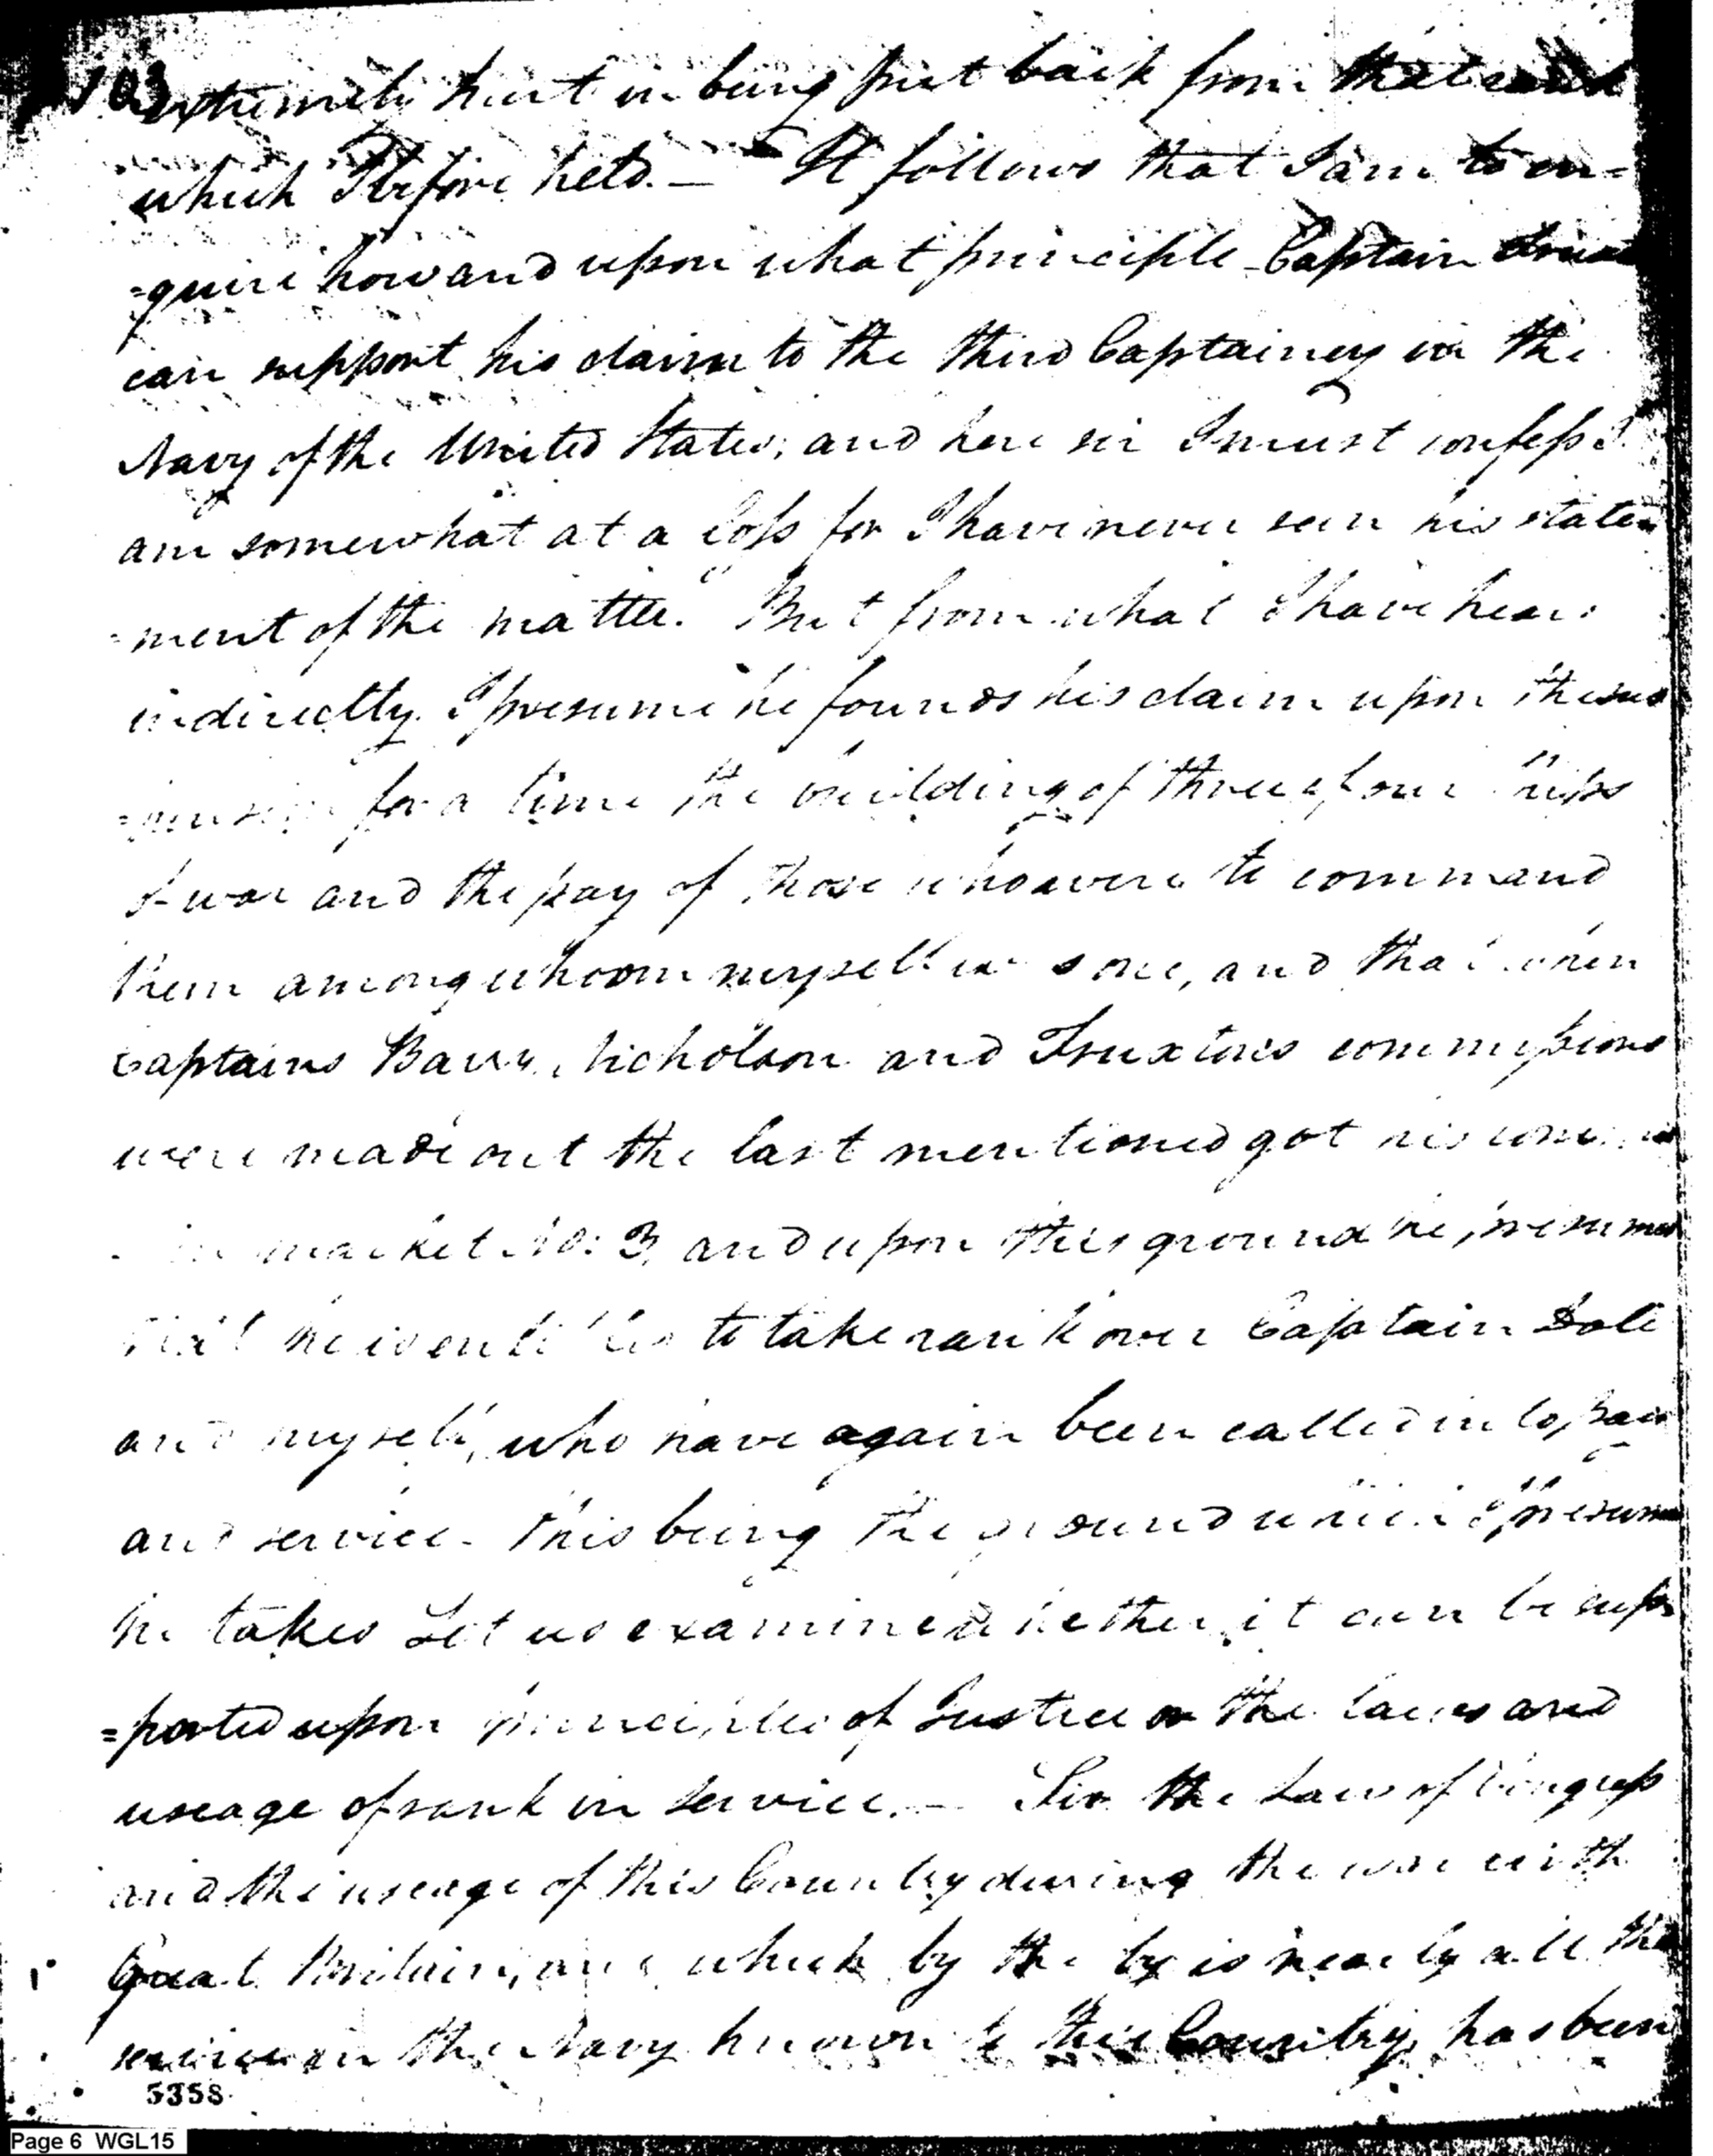 103
extremely hurt in being put back from that rank
which I before held. — It follows that I am to en=
=quire how and upon what principle Captain
can support his claim to the third Captaincy in the
Navy of the United States; and here sir I must confess I
am somewhat at a loss for I have never seen his state
=ment of the matter. But from what I have hear
indirectly. I presume he founds his claim upon the sus
for a time the building of three of our ships
of war and the pay of those who were to command
them among whom myself was one, and that when
Captains Barry, Nicholson and Truxtons commissions
were made out the last mentioned got his
market No: 3, and upon this ground he presumes
that he is entitled to take rank over Captain Dale
and myself, who have again been called into pay
and service. This being the ground which I presume
he takes Let us examine whether it can be sup
=ported upon principles of Justice or the laws and
useage of rank in service. — Sir the Law of Congress
and the useage of this Country during the war with
Great Britain, and which by the by is nearly all the
service in the Navy known to this Country, has been
5358
Page 6 WGL15